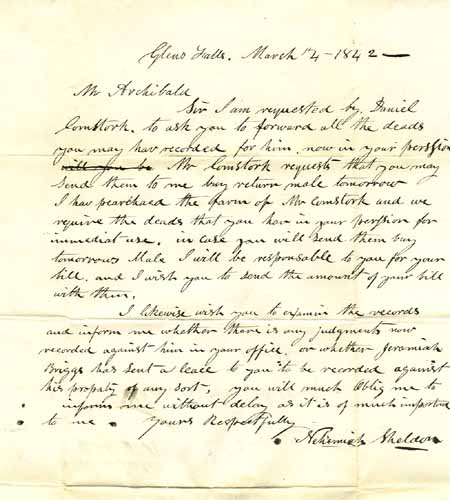 Glens Falls. March 14 - 1842 —
Mr Archibald
Sir I am requested by Daniel
Comstork. to ask you to forward all the deads
you may hav recorded for him. now in your perssion
Mr Comstork requests that you may
Send them to me buy return male tomorrow
I hav pearchaed the farm of Mr Comstork and we
require the deads that you hav in your perssion for
immediat use. in case you will send them buy
tomorrows Male I will be responsable to you for your
bill. and I wish you to send the amount of your bill
with them.
I likewise wish you to examin the records
and inform me whether there is any judgments now
recorded against him in your office, or whether Jeramiah
Briggs has sent a leace to you to be recorded against
his propaty of any sort; you will much Oblig me to
inform me without delay as it is of much importnce
to me. Yours Respectfully
Nehemiah Sheldon